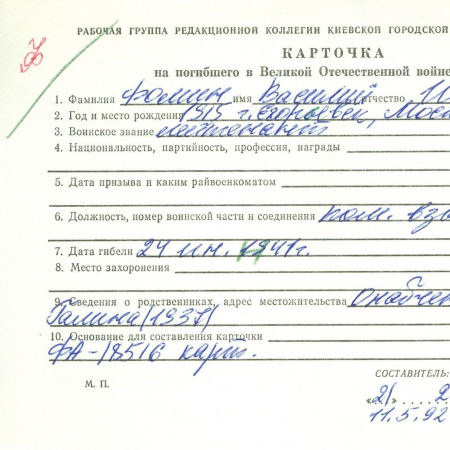 РАБОЧАЯ ГРУППА РЕДАКЦИОННОЙ КОЛЛЕГИИ КИЕВСКОЙ ГОРОДСКОЙ
КАРТОЧКА
на погибшего в Великой Отечественной войне
1. Фамилия Фомин имя Василий отчество
2. Год и место рождения 1915 г. Егорьевск, Моск
3. Воинское звание лейтенант
4. Национальность, партийность, профессия, награды
5. Дата призыва и каким райвоенкоматом
6. Должность, номер воинской части и соединения ком. взв
7. Дата гибели 24 июн. 1941г.
8. Место захоронения
9. Сведения о родственниках, адрес местожительства
Галина (1937)
10. Основание для составления карточки
ФА-18516 карт.
М. П.
СОСТАВИТЕЛЬ:
«21» 2
11.5.92